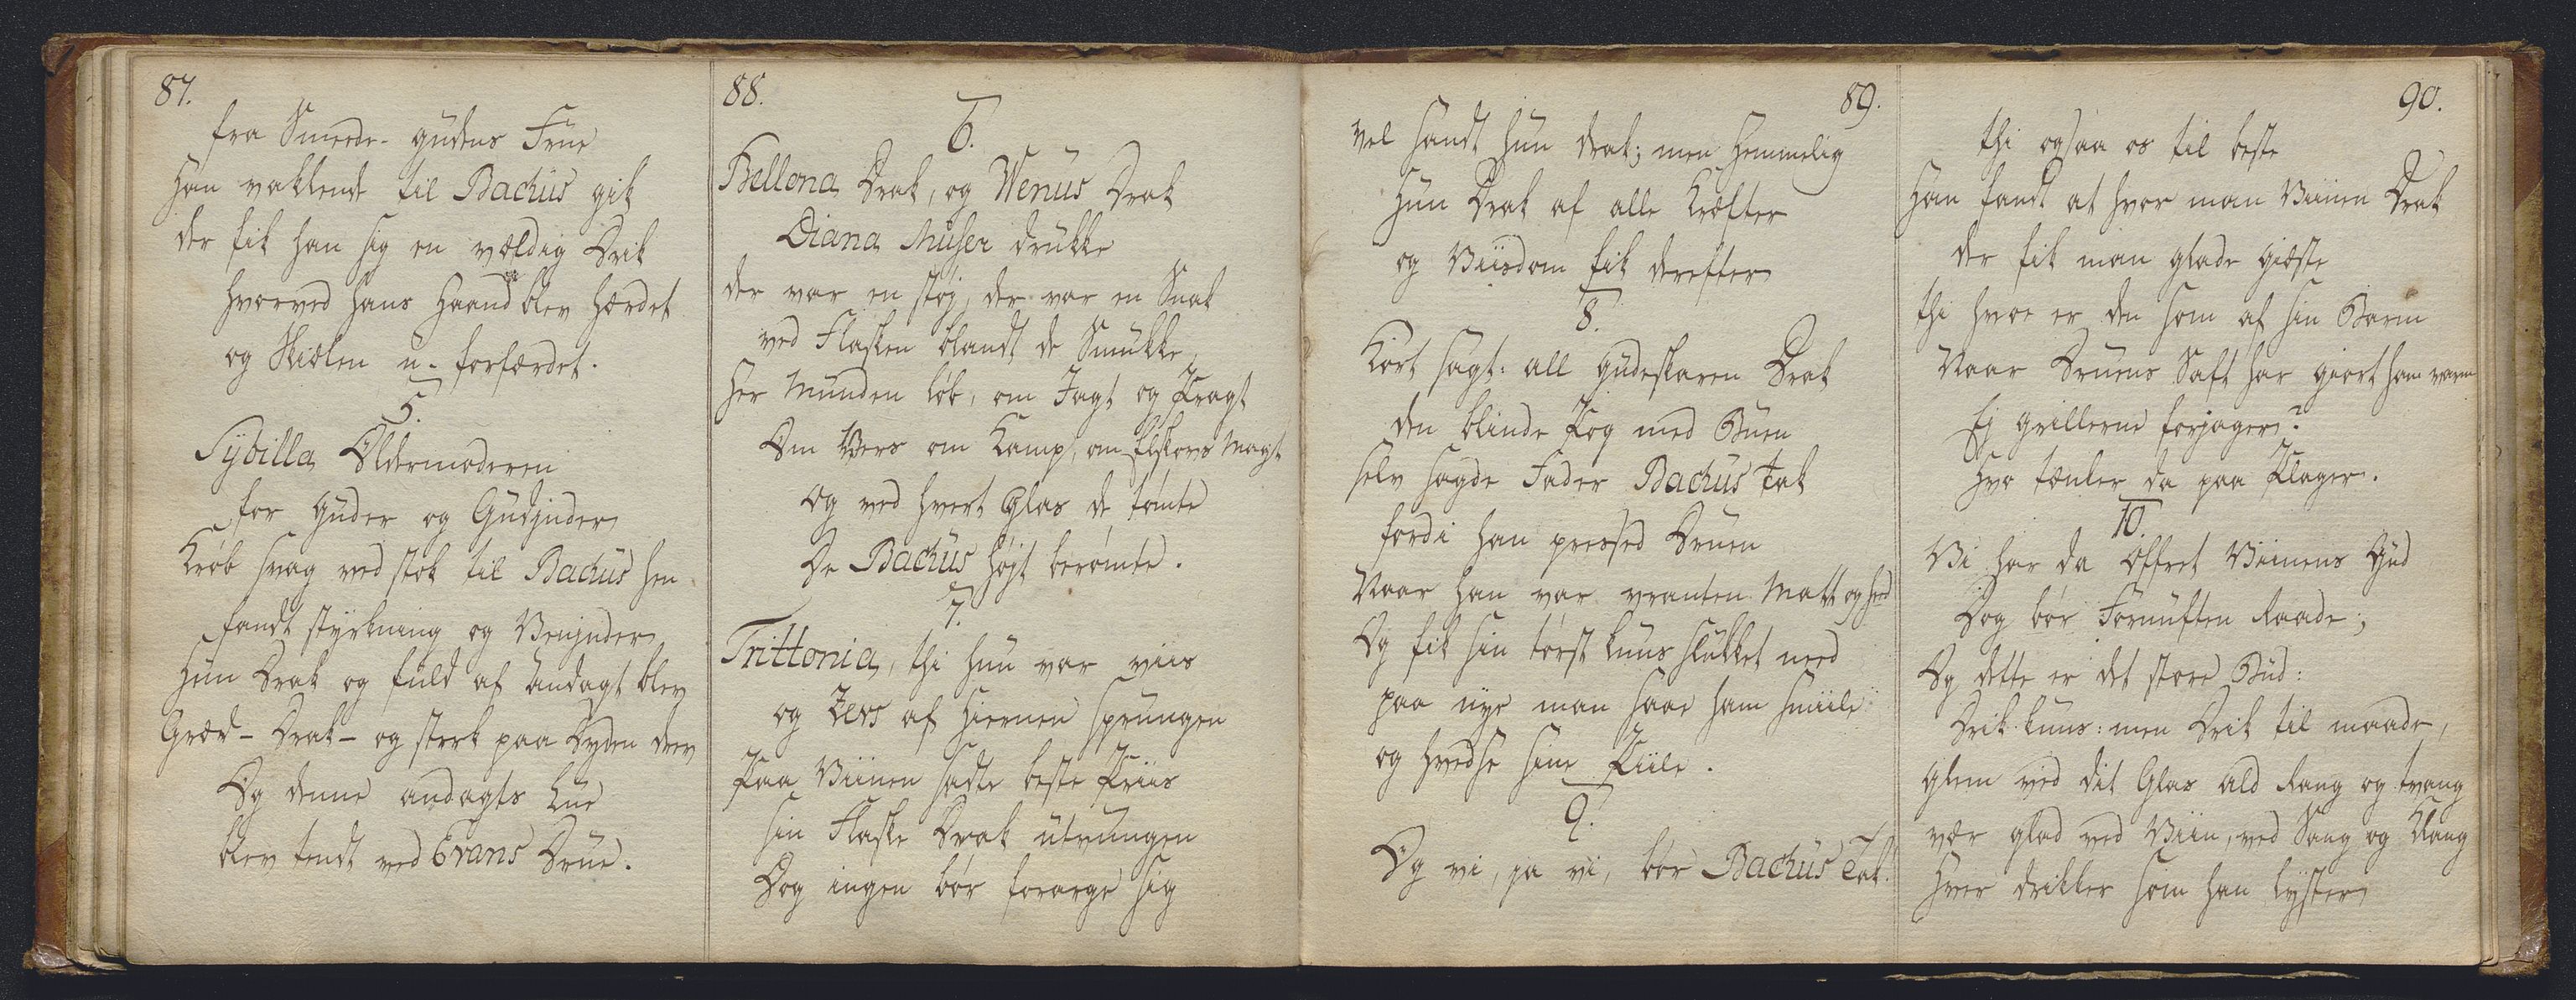 87.
fra Smede-gudens Frue
Han vaklende til Bachus gik
der fik han sig en vældig Drik
hvorved hans Haand blev hærdet
og Siælen u-forfærdet.
5.
Sybilla Oldermoderen
for Guder og Gudjnder
Krøb svag ved stok til Bachus hen
fandt styrkning og Venjnder
Hun Drak og fuld af Andagt blev
Græd- Drak- og sterk paa Dyden drev
Og denne andagts Lue
blev tendt ved Evans Drue.
88.
6.
Bellona Drak, og Wenus Drak
Diana Muser drukke
der var en støj, der var en Snak
ved Flasken blandt de Smukke
Her Munden løb, om Jagt og Pragt
Om Vers om Kamp, om Elskovs Magt
og ved hvert Glas de tømte
De Bachus højt berømte.
7.
Trittonia, thi hun var viis
og Zevs af Hiernen sprungen
Paa Viinen sadte beste Priis
sin Flaske Drak utvungen
Dog ingen bør forarge sig
89.
vel sandt hun drak; men Hemmelig
Hun Drak af alle Kræfter
og Viisdom fik derefter
8.
Kort sagt: all gudeskaren Drak
den blinde Pog med Buen
selv sagde Fader Bachus tak
fordi han pressed Druen
Naar han var vranten Matt og hed
Og fik sin tørst kuns slukket need
paa nye man saae ham smiile
og hvedse sine Piile.
9.
Og vi, ja vi, bør Bachus Tak
90.
thi ogsaa os til beste
Han fandt at hvor man Viinen Drak
der fik man glade giæste
thi hvor er den som af sin Barm
Naar Druens Saft har giort ham varm
Ej grillerne forjager?
Hvo tænker da paa Plager.
10.
Vi har da Offret Viinens Gud
Dog bør Fornuften Raade;
Og dette er det store Bud:
Drik kuns: men Drik til maade,
glem ved dit Glas ald Rang og tvang
vær glad ved Viin, ved Sang og Klang
Hver drikker som han lyster